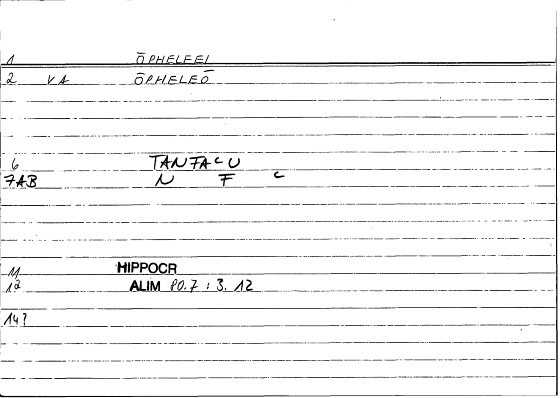 1 ŌPHELEEI
2 VA ŌPHELEŌ
6 TANFACU
7AB N F C
11 HIPPOCR
12 ALIM 80.7 : 3. 12
14?